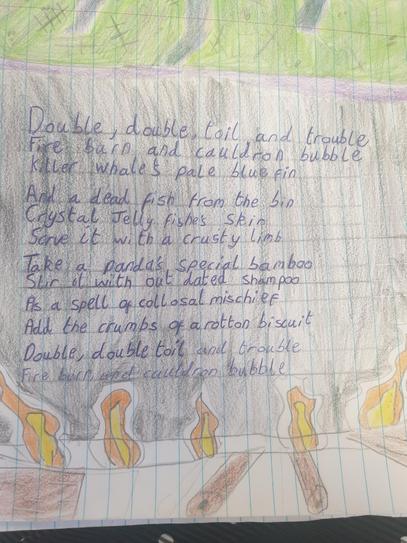 Double, double, toil and trouble
Fire burn and cauldron bubble
Killer whale's pale blue fin
And a dead fish from the bin
Crystal Jelly fishe's Skin
Serve it with a crusty limb
Take a panda's special bamboo
Stir it with out dated shampoo
As a spell of collosal mischief
Add the crumbs of a rotton biscuit
Double, double toil and trouble
Fire burn and cauldron bubble